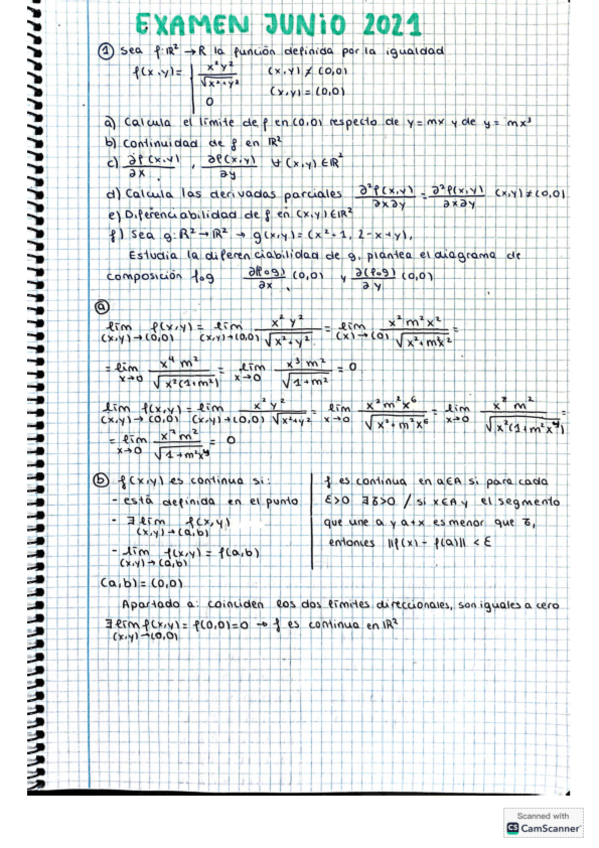 EXAMEN JUNIO 2021
① Sea f:ℝ² → ℝ la función definida por la igualdad
f(x,y) = { x²y² / √(x²+y²)   (x,y) ≠ (0,0)
0   (x,y) = (0,0)
a) Calcula el límite de f en (0,0) respecto de y = mx y de y = mx³
b) Continuidad de f en ℝ²
c) ∂f(x,y)/∂x , ∂f(x,y)/∂y ∀ (x,y) ∈ ℝ²
d) Calcula las derivadas parciales ∂²f(x,y)/∂x∂y = ∂²f(x,y)/∂x∂y (x,y) ≠ (0,0)
e) Diferenciabilidad de f en (x,y) ∈ ℝ²
f) Sea g: ℝ² → ℝ² → g(x,y) = (x²-1, 2-x+y),
Estudia la diferenciabilidad de g, plantea el diagrama de
composición fog ∂(fog)/∂x (0,0) y ∂(fog)/∂y (0,0)
ⓐ
lím (x,y)→(0,0) f(x,y) = lím (x,y)→(0,0) x²y² / √(x²+y²) = lím (x)→(0) x²m²x² / √(x²+mx²) =
= lím x→0 x⁴m² / √(x²(1+m²)) = lím x→0 x³m² / √(1+m²) = 0
lím (x,y)→(0,0) f(x,y) = lím (x,y)→(0,0) x²y² / √(x²+y²) = lím x→0 x²m²x⁶ / √(x²+m²x⁶) = lím x→0 x⁸m² / √(x²(1+m²x⁴)) =
= lím x→0 x⁷m² / √(1+m²x⁴) = 0
ⓑ f(x,y) es continua si:
- está definida en el punto
- ∃ lím (x,y)→(a,b) f(x,y)
- lím (x,y)→(a,b) f(x,y) = f(a,b)
f es continua en a∈A si para cada
ε>0 ∃ δ>0 / si x∈A y el segmento
que une a y a+x es menor que δ,
entonces ||f(x) - f(a)|| < ε
(a,b) = (0,0)
Apartado a: coinciden los dos límites direccionales, son iguales a cero
∃ lím (x,y)→(0,0) f(x,y) = f(0,0) = 0 → f es continua en ℝ²
Scanned with
CS CamScanner